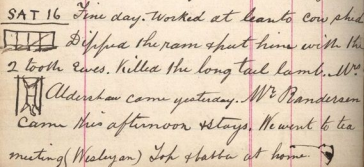 SAT 16 Fine day. Worked at leanto cow she
Dipped the ram & put him with the
2 tooth Ewes. Killed the long tail lamb. Mrs
Aldershaw came yesterday. Mr Randerson
came this afternoon & stays. We went to tea
meeting (Wesleyan) Top & babba at home